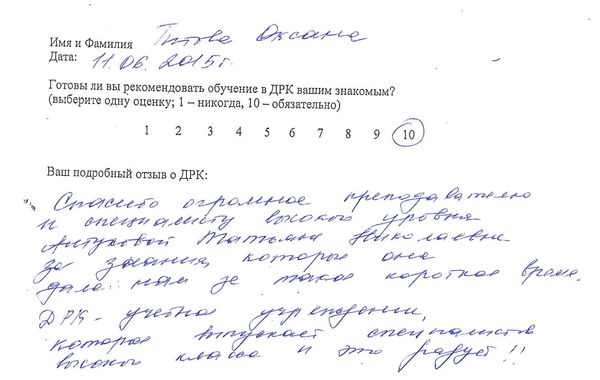 Имя и Фамилия Титова Оксана
Дата: 11.06.2015г.
Готовы ли вы рекомендовать обучение в ДРК вашим знакомым?
(выберите одну оценку; 1 – никогда, 10 – обязательно)
1 2 3 4 5 6 7 8 9 10
Ваш подробный отзыв о ДРК:
Спасибо огромное преподавателю
и специалисту высокого уровня
Татьяне Николаевне
за знания, которые она
дала нам за такое короткое время.
ДРК - учебное учреждение,
которое выпускает специалистов
высокого класса и это радует!!